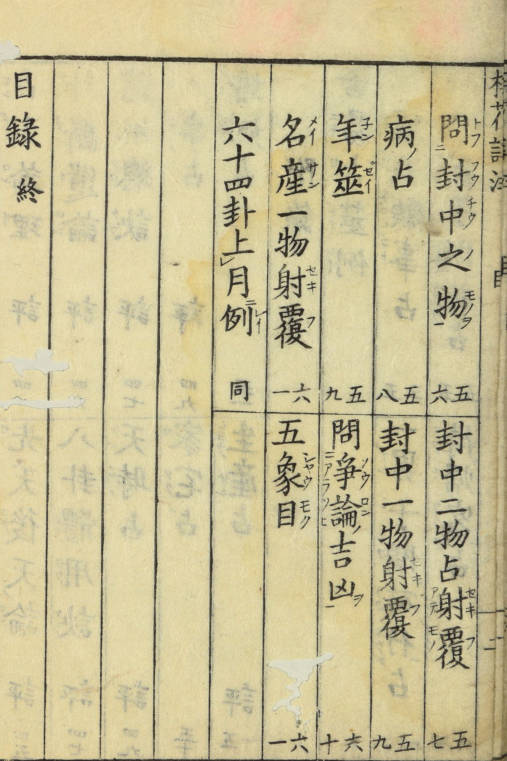 問封中之物 五六
封中二物占射覆 五七
病ノ占 五八
封中一物射覆 五九
年筮 五九
問爭論吉凶 六十
名産一物射覆 六一
五象目 六一
六十四卦上月例 同
目録終